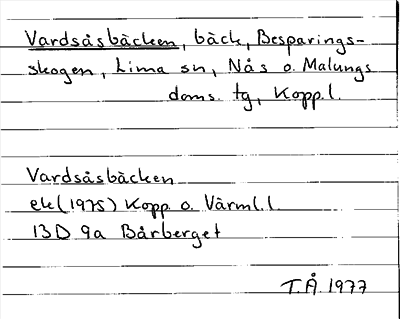 Vardsåsbäcken, bäck, Besparings-
skogen, Lima sn, Nås o. Malungs
doms. tg, Kopp.l.
Vardsåsbäcken
ek (1975) Kopp. o. Värml.l.
13D 9a Bårberget
T.Å. 1977